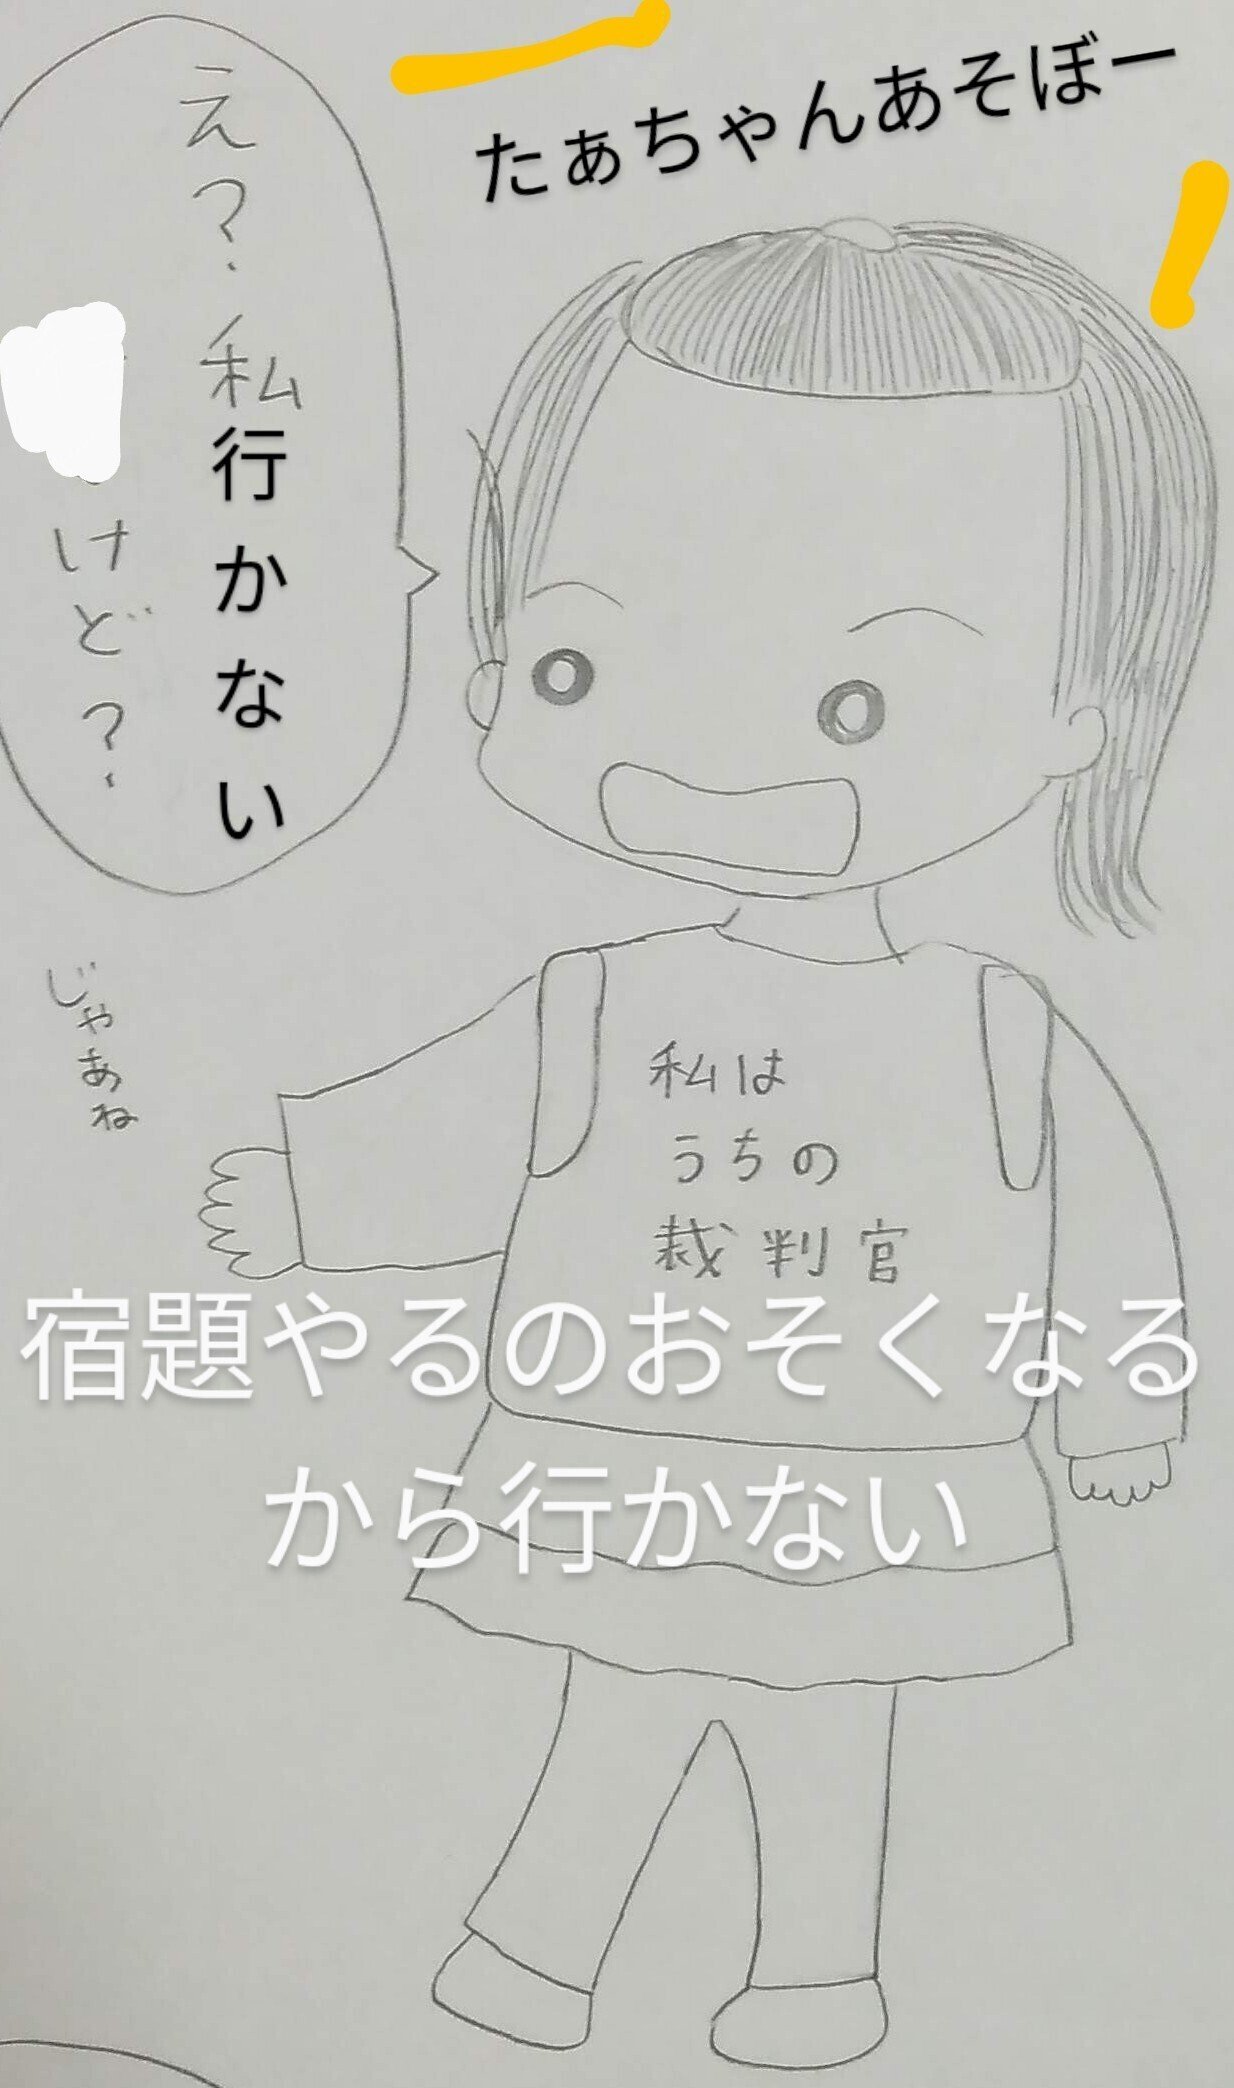 たぁちゃんあそぼー
え?私行かない
けど?
じゃあね
私は
うちの
裁判官
宿題やるのおそくなる
から行かない